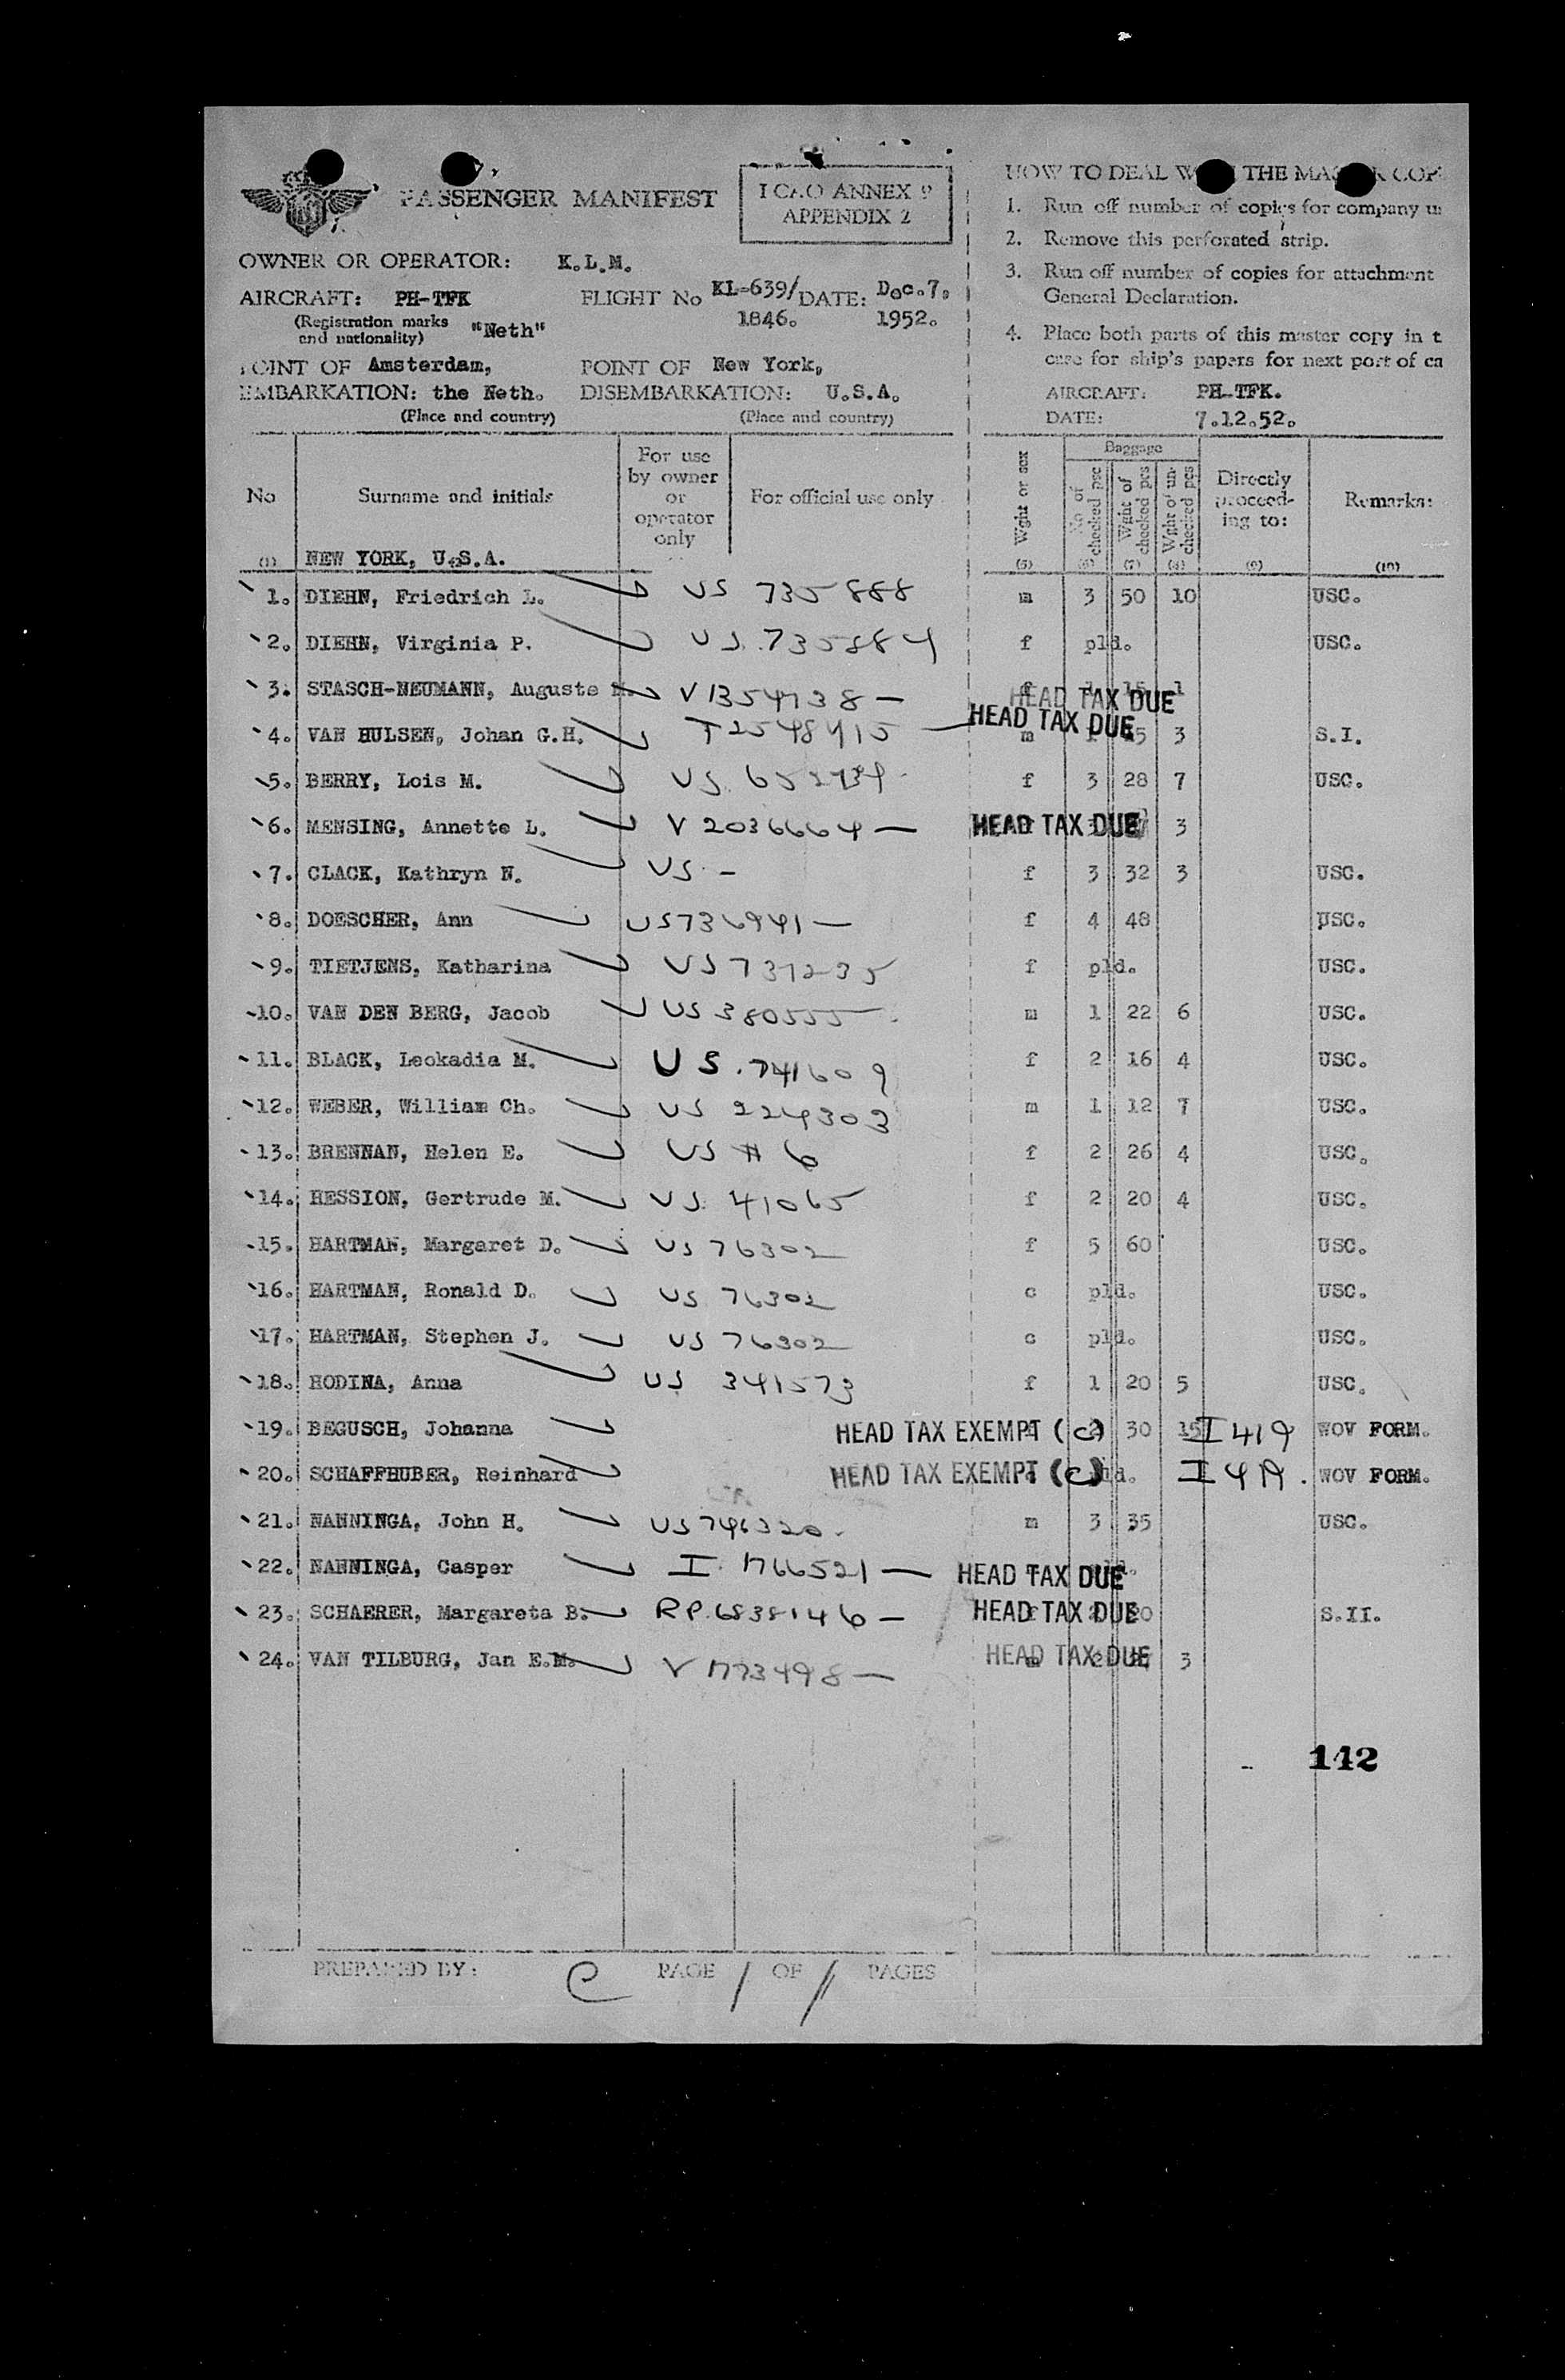 PASSENGER MANIFEST
ICAO ANNEX 9
APPENDIX 2
OWNER OR OPERATOR: K.L.M.
AIRCRAFT: PH-TFK FLIGHT No KL-639/ DATE: Dec.7,
(Registration marks and nationality) "Neth" 1846. 1952.
POINT OF Amsterdam, POINT OF New York,
EMBARKATION: the Neth. DISEMBARKATION: U.S.A.
(Place and country) (Place and country)
HOW TO DEAL THE COP
1. Run off number of copies for company u
2. Remove this perforated strip.
3. Run off number of copies for attachment
General Declaration.
4. Place both parts of this master copy in t
case for ship's papers for next port of ca
AIRCRAFT: PH-TFK.
DATE: 7.12.52.
No Surname and initials For use by owner or operator only For official use only Wght or sex Baggage No of checked pcs Wght of checked pcs Wght of un-checked pcs Directly proceed-ing to: Remarks:
(1) NEW YORK, U.S.A. (5) (6) (7) (8) (9) (10)
1. DIEHN, Friedrich L. US 735888 m 3 50 10 USC.
2. DIEHN, Virginia P. US.735884 f pld. USC.
3. STASCH-NEUMANN, Auguste V1354738 — HEAD TAX DUE 15 1
4. VAN HULSEN, Johan G.H. T2548415 — HEAD TAX DUE m 5 3 S.I.
5. BERRY, Lois M. US. f 3 28 7 USC.
6. MENSING, Annette L. V 2036664 — HEAD TAX DUE 3
7. CLACK, Kathryn N. US - f 3 32 3 USC.
8. DOESCHER, Ann US736941 — f 4 48 USC.
9. TIETJENS, Katharina US 731235 f pld. USC.
10. VAN DEN BERG, Jacob US 380555 m 1 22 6 USC.
11. BLACK, Leokadia M. US.741609 f 2 16 4 USC.
12. WEBER, William Ch. US 224303 m 1 12 7 USC.
13. BRENNAN, Helen E. US # 6 f 2 26 4 USC.
14. HESSION, Gertrude M. US. 41065 f 2 20 4 USC.
15. HARTMAN, Margaret D. US 76302 f 5 60 USC.
16. HARTMAN, Ronald D. US 76302 c pld. USC.
17. HARTMAN, Stephen J. US 76302 c pld. USC.
18. HODINA, Anna US 341573 f 1 20 5 USC.
19. BEGUSCH, Johanna HEAD TAX EXEMPT (c) 30 15 I 419 WOV FORM.
20. SCHAFFHUBER, Reinhard HEAD TAX EXEMPT (c) pld. I 419. WOV FORM.
21. NANNINGA, John H. US746320. m 3 35 USC.
22. NANNINGA, Casper I. 1766521 — HEAD TAX DUE
23. SCHAERER, Margareta B. RP.6838146 — HEAD TAX DUE S.II.
24. VAN TILBURG, Jan E.M. V 1773498 — HEAD TAX DUE m 2 3
142
PREPARED BY: C PAGE 1 OF 11 PAGES